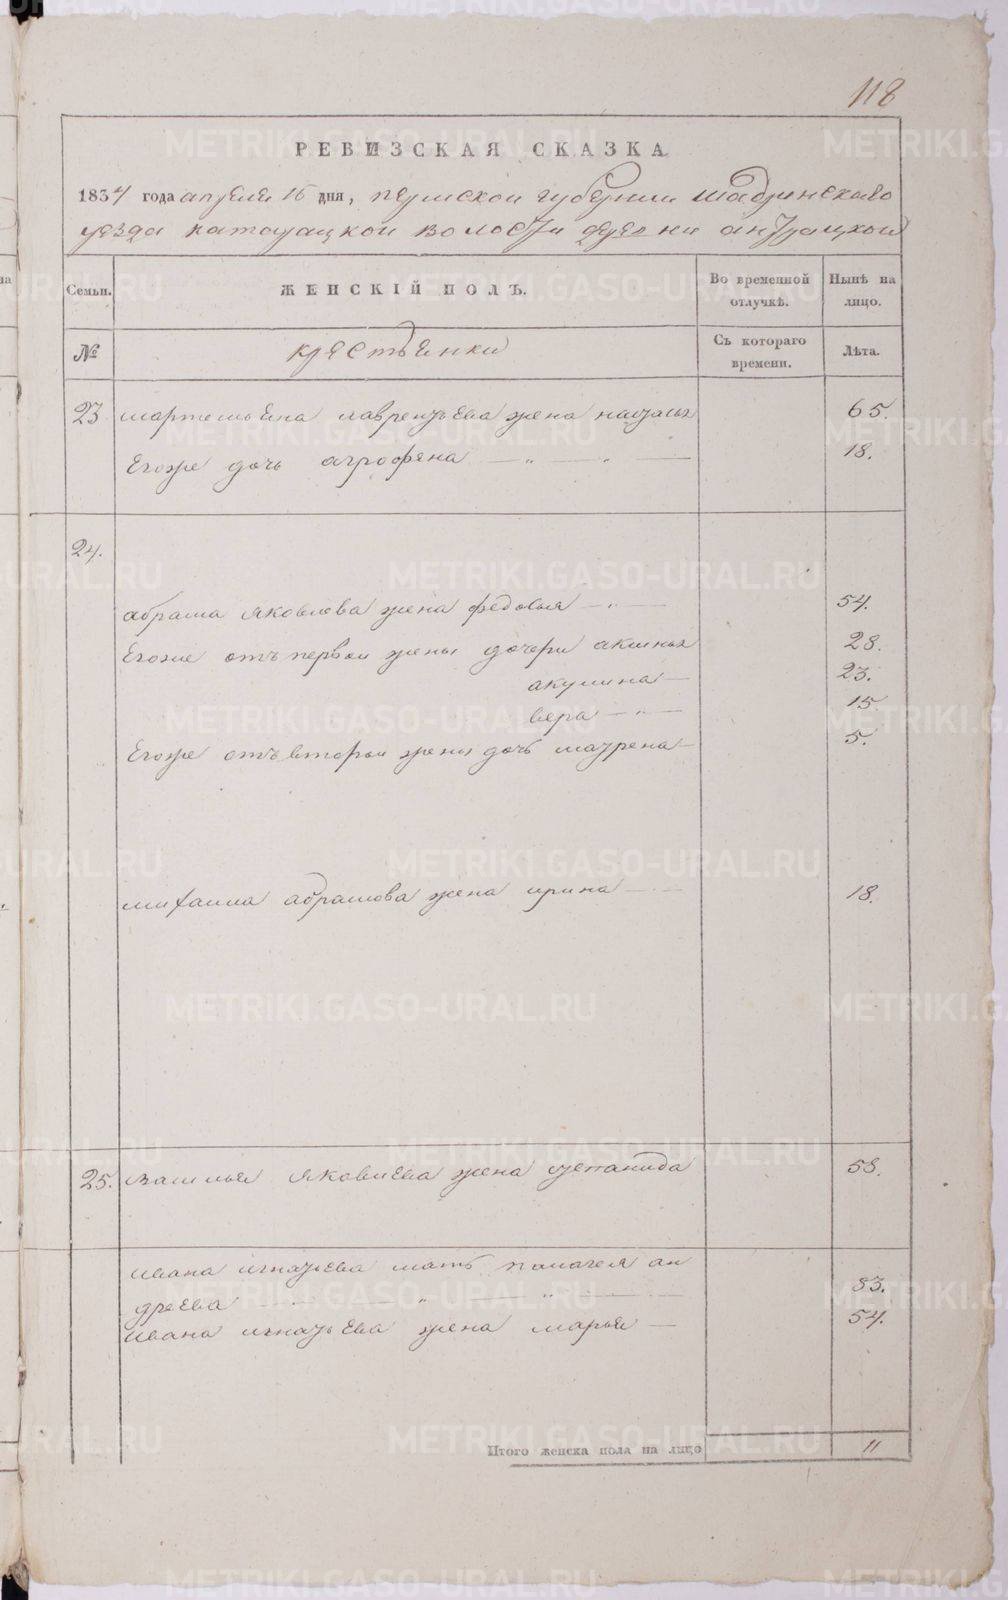 118
РЕВИЗСКАЯ СКАЗКА
1834 года апреля 16 дня, пермской губернии шадринскаго
уезда катоцацкой волости деревни анчуацкой
Семьи.
ЖЕНСКІЙ ПОЛЪ.
Во временной отлучкѣ.
Нынѣ на лицо.
№
крестьенки
Съ котораго времени.
Лѣта.
23 мартемьена лаврентьева жена наталья 65.
Егоже дочь агрофена — „ — „ — 18.
24.
абрама яковлева жена федосья — „ — 54.
Егоже отъ первои жены дочери аксинья 28.
акулина — 23.
вера — „ — 15.
Егоже отъ вторыи жены дочь маурена — 5.
михаила абрамова жена ирина — 18.
25. василья яковлева жена степанида 58.
ивана игнатьева мать палагея ан
дреева — „ — „ — 83.
ивана игнатьева жена марья — 54.
Итого женска пола на лицо 11
METRIKI.GASO-URAL.RU